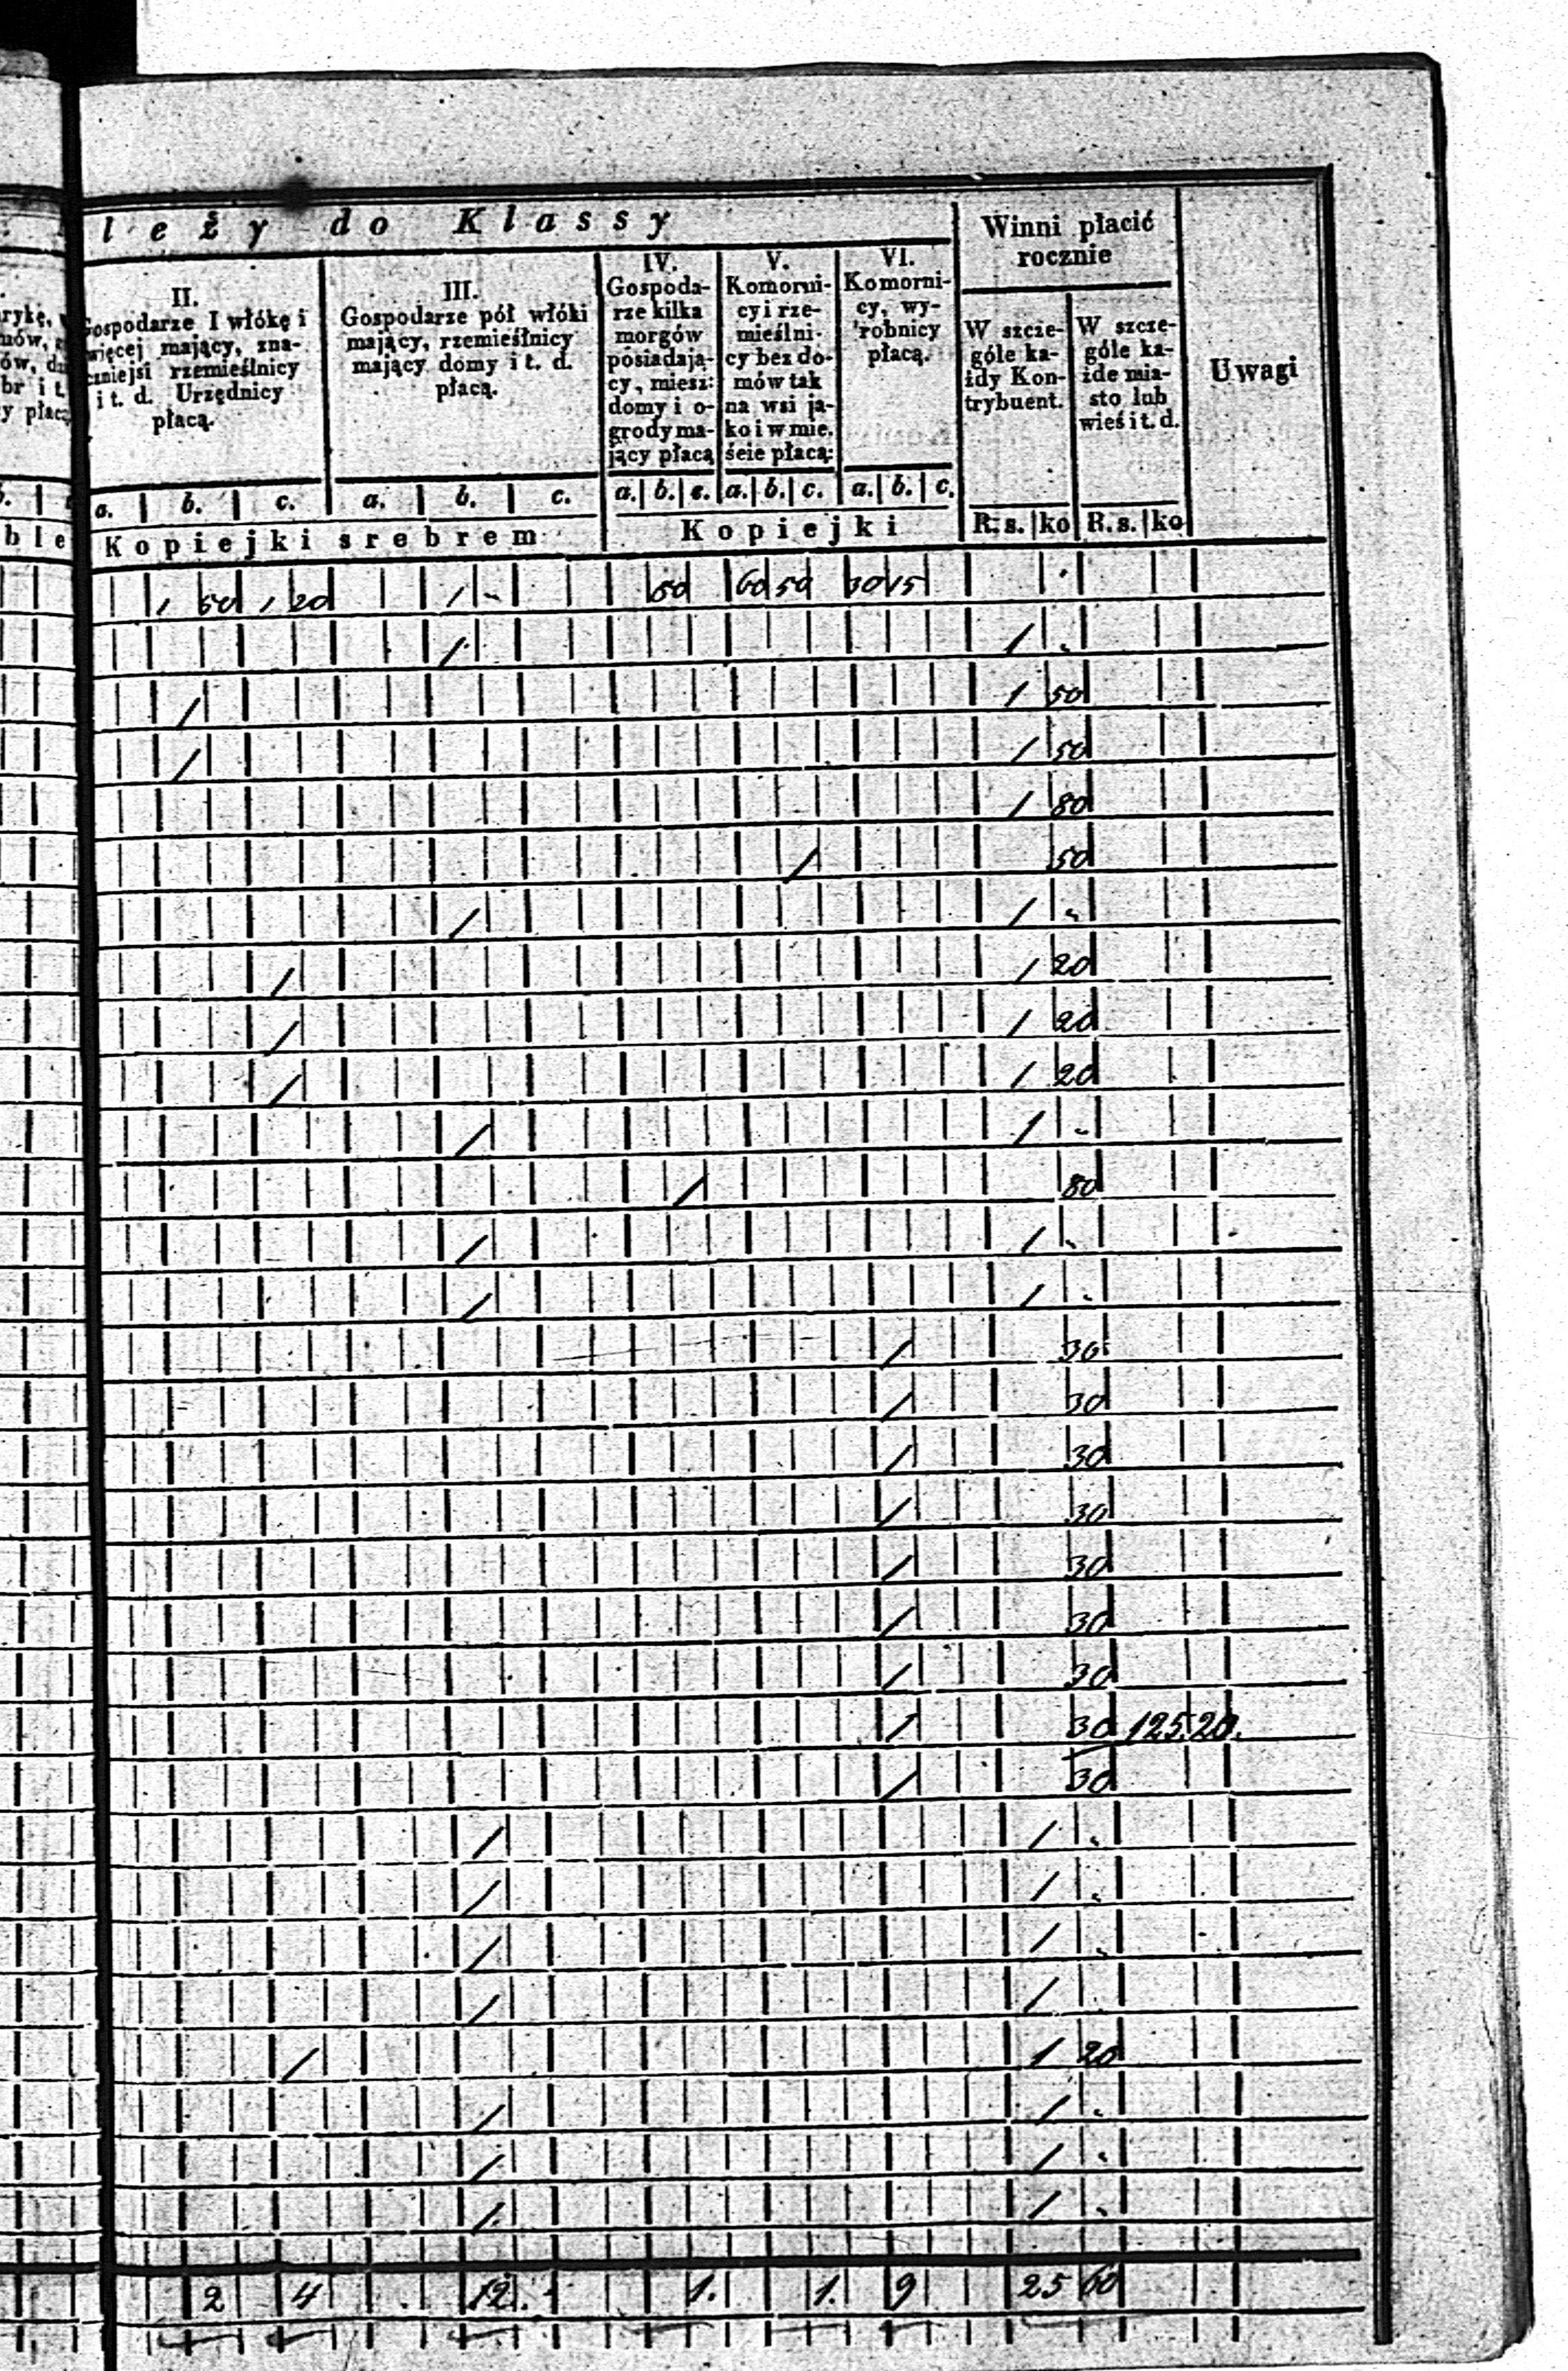 leży do Klassy
Winni płacić
rocznie
Uwagi
II.
Gospodarze I włókę i
więcej mający, zna-
czniejsi rzemieślnicy
i t. d. Urzędnicy
płacą.
III.
Gospodarze pół włóki
mający, rzemieślnicy
mający domy i t. d.
płacą.
IV.
Gospoda-
rze kilka
morgów
posiadają-
cy, miesz:
domy i o-
grody ma-
jący płacą
V.
Komorni-
cy i rze-
mieślni-
cy bez do-
mów tak
na wsi ja-
ko i w mie.
ście płacą:
VI.
Komorni-
cy, wy-
robnicy
płacą.
W szcze-
góle ka-
żdy Kon-
trybuent.
W szcze-
góle ka-
żde mia-
sto lub
wieś i t. d.
a. b. c. a. b. c. a. b. c. a. b. c. a. b. c.
Kopiejki srebrem Kopiejki R. s. ko R. s. ko
1 50 1 20 1 - 60 50 30 15
1 1 -
1 1 50
1 1 50
1 80
1 50
1 1 -
1 1 20
1 1 20
1 1 20
1 1 -
1 80
1 1 -
1 1 -
1 30
1 30
1 30
1 30
1 30
1 30
1 30
1 30 125 20.
1 30
1 1 -
1 1 -
1 1 -
1 1
1 1 20
1 1 -
1 1 -
1 1 -
2 4 12. 1. 1. 9 25 60